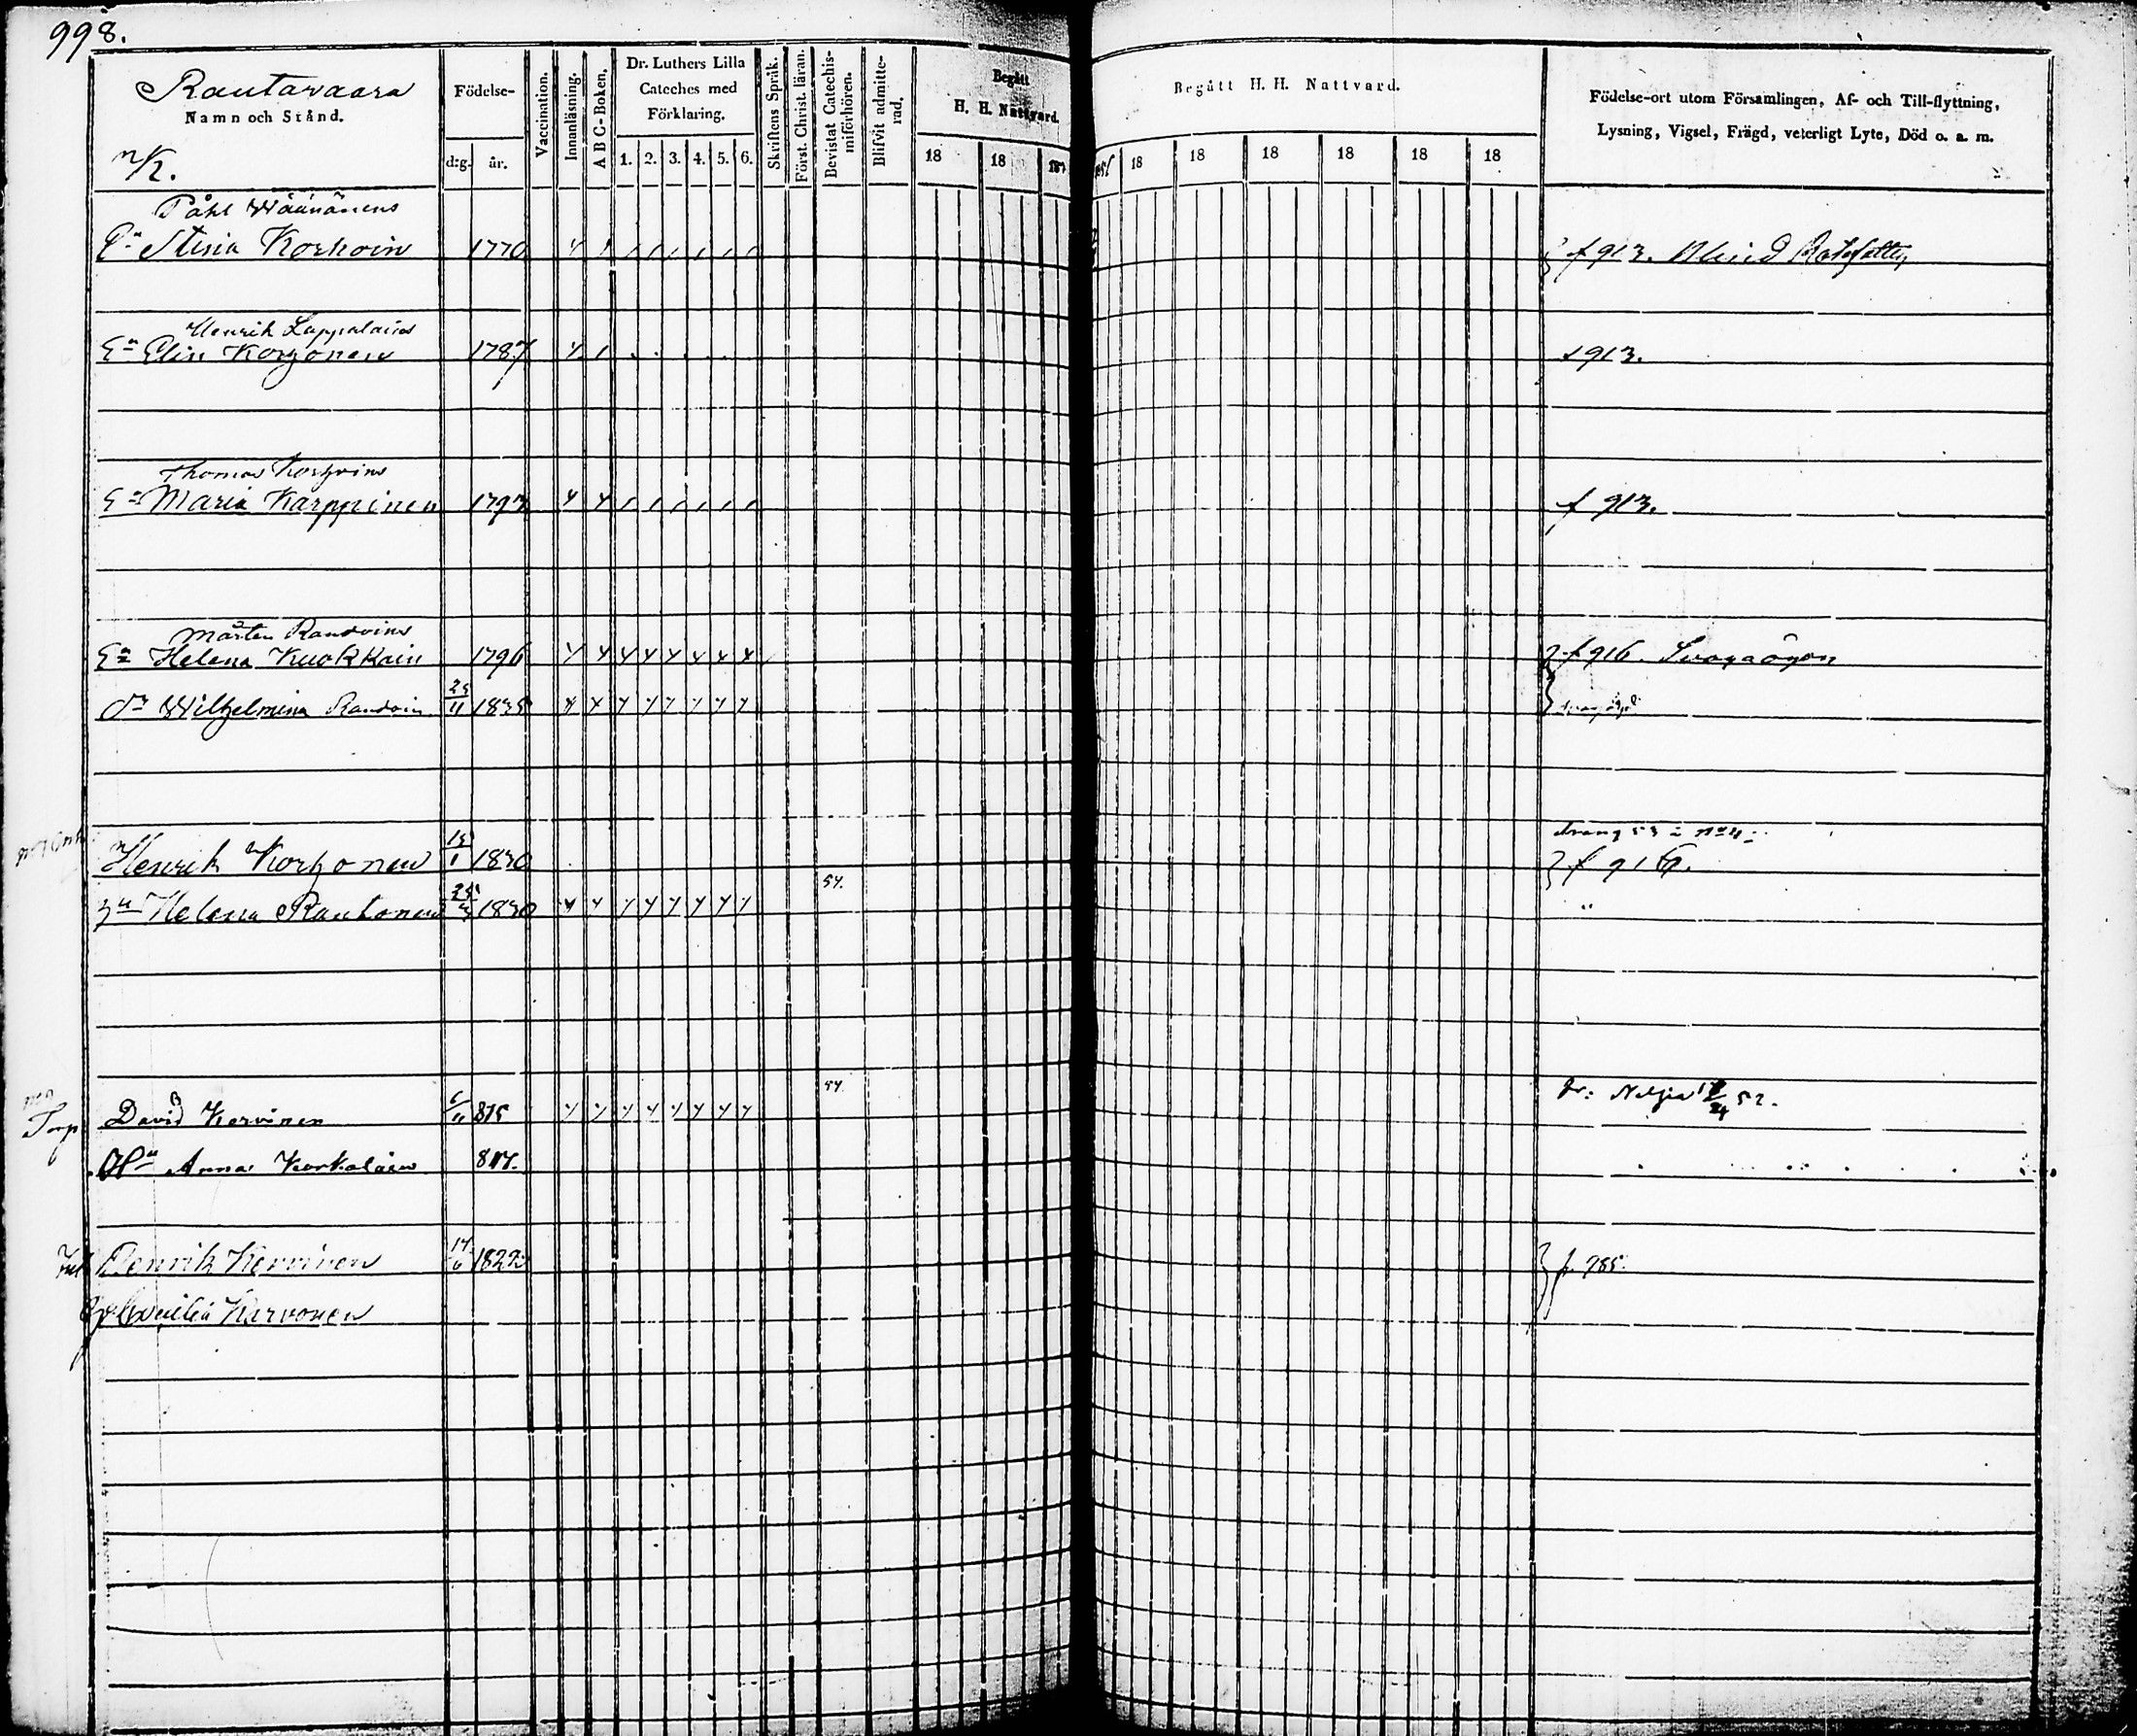 998.
Rautavaara
Namn och Stånd.
Födelse-
d:g. år.
Vaccination.
Innanläsning.
A B C-Boken.
Dr. Luthers Lilla
Cateches med
Förklaring.
1. 2. 3. 4. 5. 6.
Skriftens Språk.
Först. Christ. läran.
Bevistat Catechis-
miförhören.
Blifvit admitte-
rad.
Begått
H. H. Nattvard.
18 18
Begått H. H. Nattvard.
18 18 18 18 18 18
Födelse-ort utom Församlingen, Af- och Till-flyttning,
Lysning, Vigsel, Frägd, veterligt Lyte, Död o. a. m.
Påhl Väänänens
Eª Stina Korhoin 1770 f 913. Blind
Henrik Lappalains
Eª Elin Korhonen 1787 f 913.
Thomas Korhoins
Eª Maria Karppinen 1793 f 913.
Mårten Raudoins
Eª Helena Kuokkain 1796 f 916. Svagaögon
Dr Wilhelmina Raudoin 25/11 1835
Henrik Korhonen 15/1 1830 f 916.
Hu Helena Rautonen 25/3 1830 54.
Torp David Kervinen 6/11 815 54. fr: Nilsia 52.
Hu Anna Korkalain 817.
Henrik Kervinen 14/6 1822 fr. 985.
Karvonen